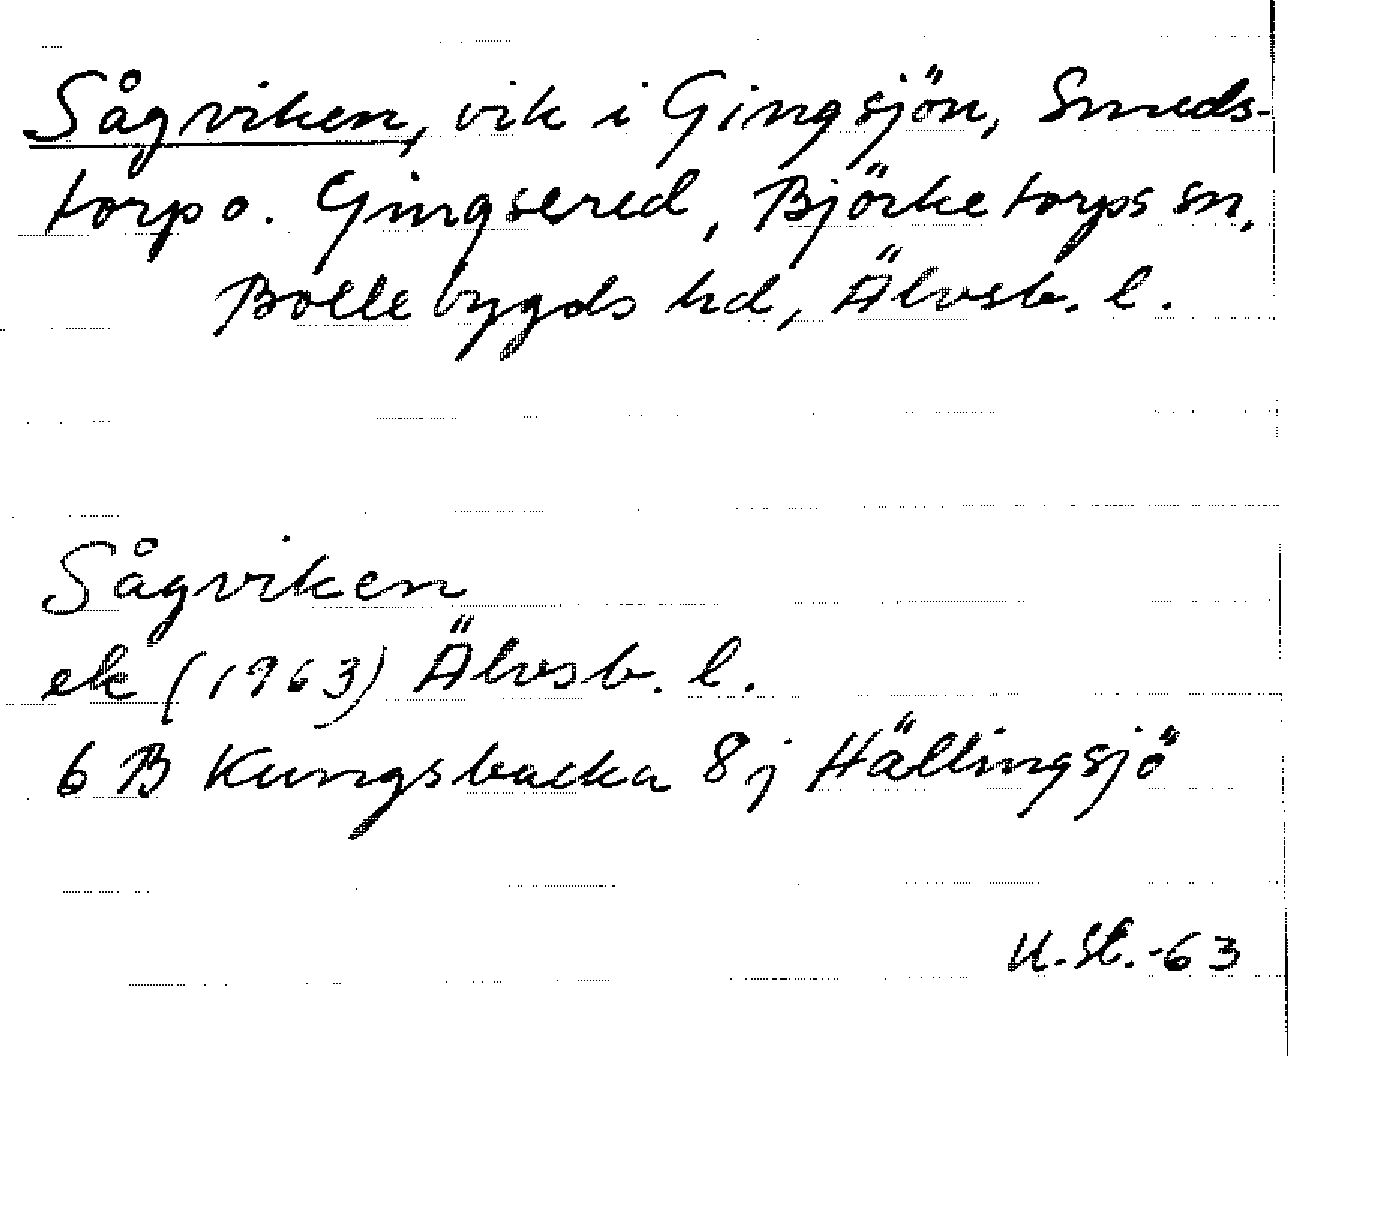 Sågviken, vik i Gingsjön, Smeds-
torp o. Gingsered, Björketorps sn,
Bollebygds hd, Älvsb. l.
Sågviken
ek (1963) Älvsb. l.
6 B Kungsbacka 8j Hällingsjö
U. St. -63